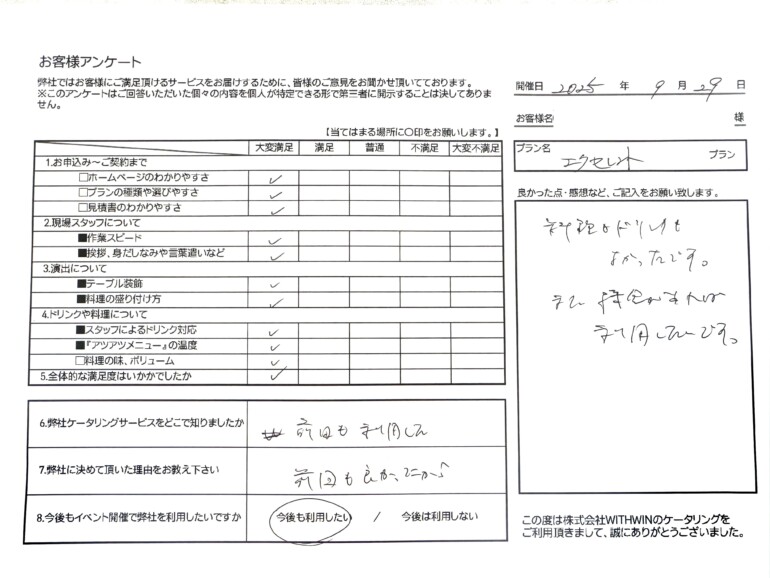 お客様アンケート
弊社ではお客様にご満足頂けるサービスをお届けするために、皆様のご意見をお聞かせ頂いております。
※このアンケートはご回答いただいた個々の内容を個人が特定できる形で第三者に開示することは決してありま
せん。
開催日 2025 年 9 月 29 日
お客様名 様
【当てはまる場所に〇印をお願いします。】
プラン名 エクセレント プラン
大変満足 満足 普通 不満足 大変不満足
1.お申込み～ご契約まで
□ホームページのわかりやすさ ✓
□プランの種類や選びやすさ ✓
□見積書のわかりやすさ ✓
2.現場スタッフについて
■作業スピード ✓
■挨拶、身だしなみや言葉遣いなど ✓
3.演出について
■テーブル装飾 ✓
■料理の盛り付け方 ✓
4.ドリンクや料理について
■スタッフによるドリンク対応 ✓
■『アツアツメニュー』の温度 ✓
□料理の味、ボリューム ✓
5.全体的な満足度はいかがでしたか ✓
良かった点・感想など、ご記入をお願い致します。
料理もドリンクも
よかったです。
また機会があれば
利用したいです。
6.弊社ケータリングサービスをどこで知りましたか 前回も利用して
7.弊社に決めて頂いた理由をお教え下さい 前回も良かったから
8.今後もイベント開催で弊社を利用したいですか 今後も利用したい / 今後は利用しない
この度は株式会社WITHWINのケータリングを
ご利用頂きまして、誠にありがとうございました。